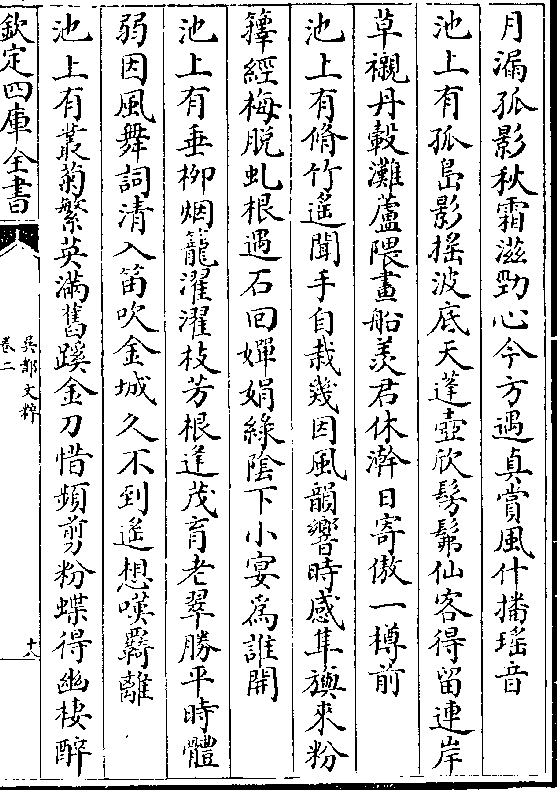 月漏孤影秋霜滋勁心今方遇真賞風什播瑶音
池上有孤島影揺波底天蓬壺欣髣髴仙客得留連岸
草襯丹轂灘蘆隈畫船羡君休澣日寄傲一樽前
池上有脩竹遥聞手自栽幾因風韻響時感隼旟來粉
籜經梅脱虬根遇石回嬋娟緑陰下小宴為誰開
池上有垂柳烟籠濯濯枝芳根逢茂育老翠勝平時體
弱因風舞詞清入笛吹金城久不到遥想嘆覇離
池上有叢菊繁英滿舊蹊金刀惜頻剪粉蝶得幽棲醉
欽定四庫全書
吳都文粹
卷二
十八